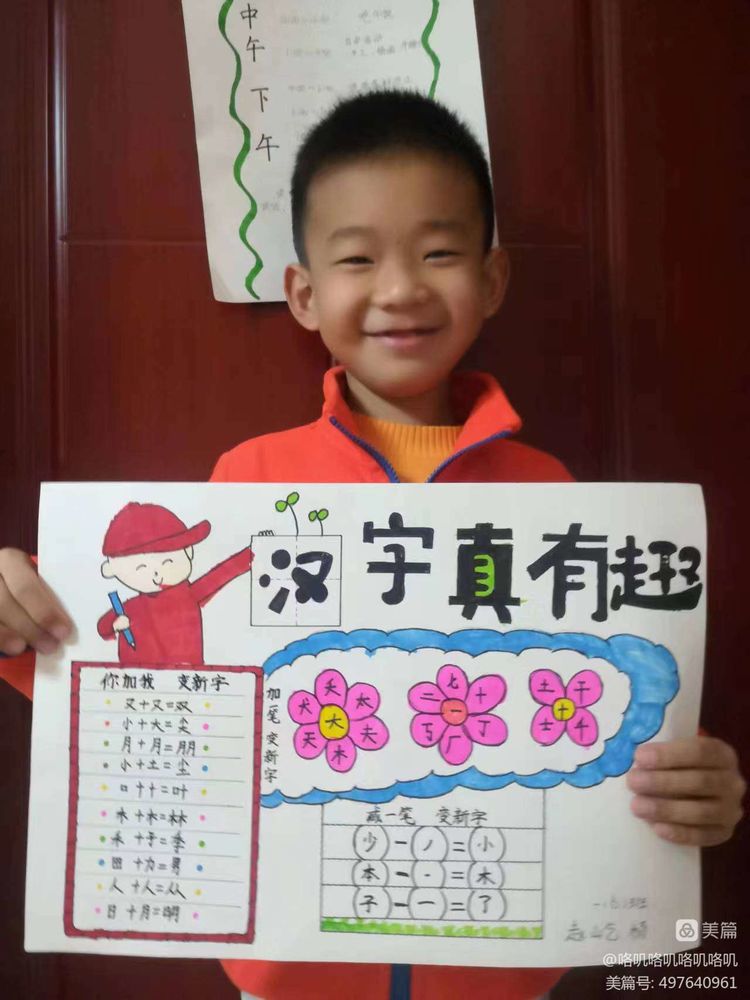 中
午
下
午
汉字真有趣
你加我 变新字
又+又=双
小+大=尖
月+月=朋
小+土=尘
口+十=叶
木+木=林
禾+子=季
田+力=男
人+人=从
日+月=明
加一笔变新字
大
头
太
夫
木
天
犬
一
七
十
丁
厂
丂
二
十
土
干
千
士
减一笔 变新字
(少)-(丿)=(小)
(本)-(-)=(木)
(子)-(一)=(了)
美篇
@咯叽咯叽咯叽咯叽
美篇号: 497640961